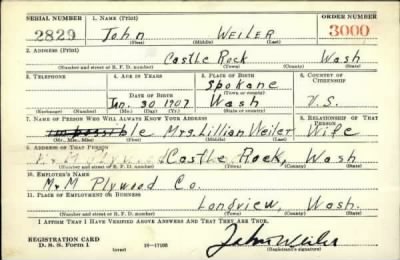 SERIAL NUMBER 1. NAME (Print) ORDER NUMBER
2829 John WEILER 3000
(First) (Middle) (Last)
2. ADDRESS (Print)
Castle Rock Wash
(Number and street or R. F. D. number) (Town) (County) (State)
3. TELEPHONE 4. AGE IN YEARS 5. PLACE OF BIRTH 6. COUNTRY OF CITIZENSHIP
Spokane
(Town or county)
DATE OF BIRTH
Jan. 30 1907 Wash U.S.
(Exchange) (Number) (Mo.) (Day) (Yr.) (State or country)
7. NAME OF PERSON WHO WILL ALWAYS KNOW YOUR ADDRESS 8. RELATIONSHIP OF THAT PERSON
impossible Mrs. Lillian Weiler Wife
(Mr., Mrs., Miss) (First) (Middle) (Last)
9. ADDRESS OF THAT PERSON
M + M Plywood Castle Rock, Wash
(Number and street or R. F. D. number) (Town) (County) (State)
10. EMPLOYER'S NAME
M + M Plywood Co.
11. PLACE OF EMPLOYMENT OR BUSINESS
Longview, Wash.
(Number and street or R. F. D. number) (Town) (County) (State)
I AFFIRM THAT I HAVE VERIFIED ABOVE ANSWERS AND THAT THEY ARE TRUE.
REGISTRATION CARD
D. S. S. Form 1 (over) 16-17105 John Weiler
(Registrant's signature)